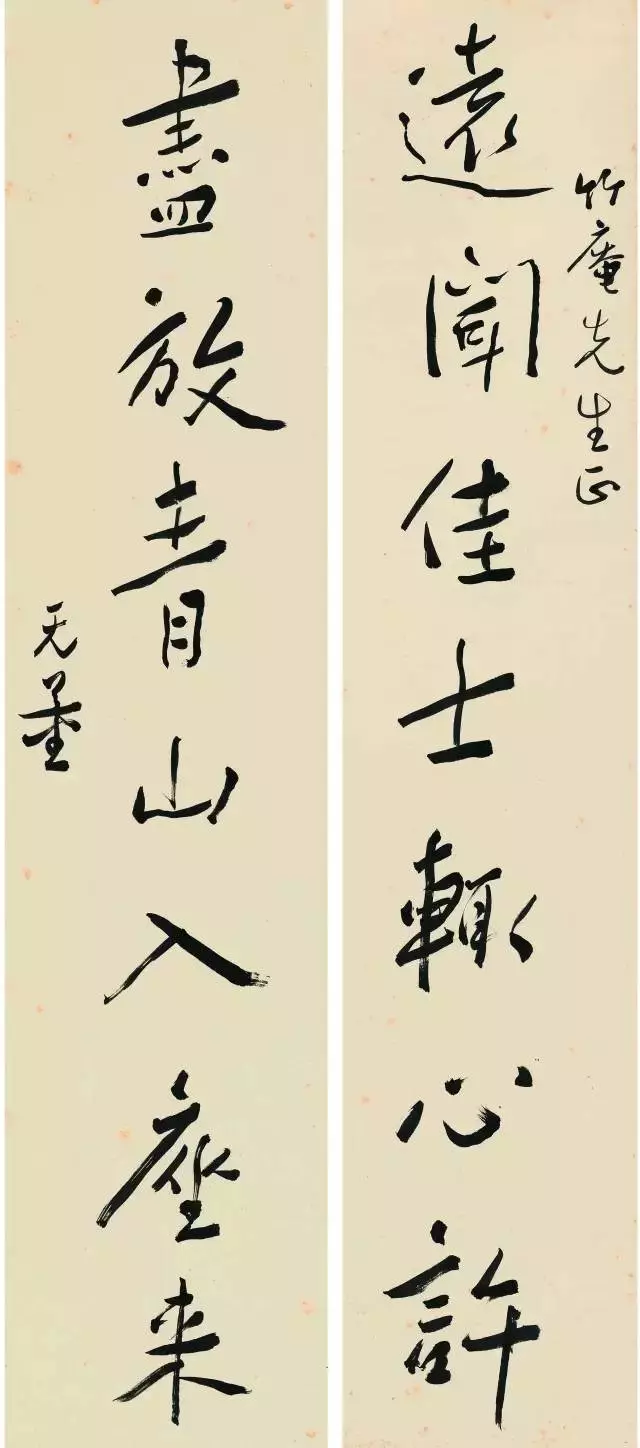 竹庵先生正
遠聞佳士輒心許
盡放青山入座来
无量